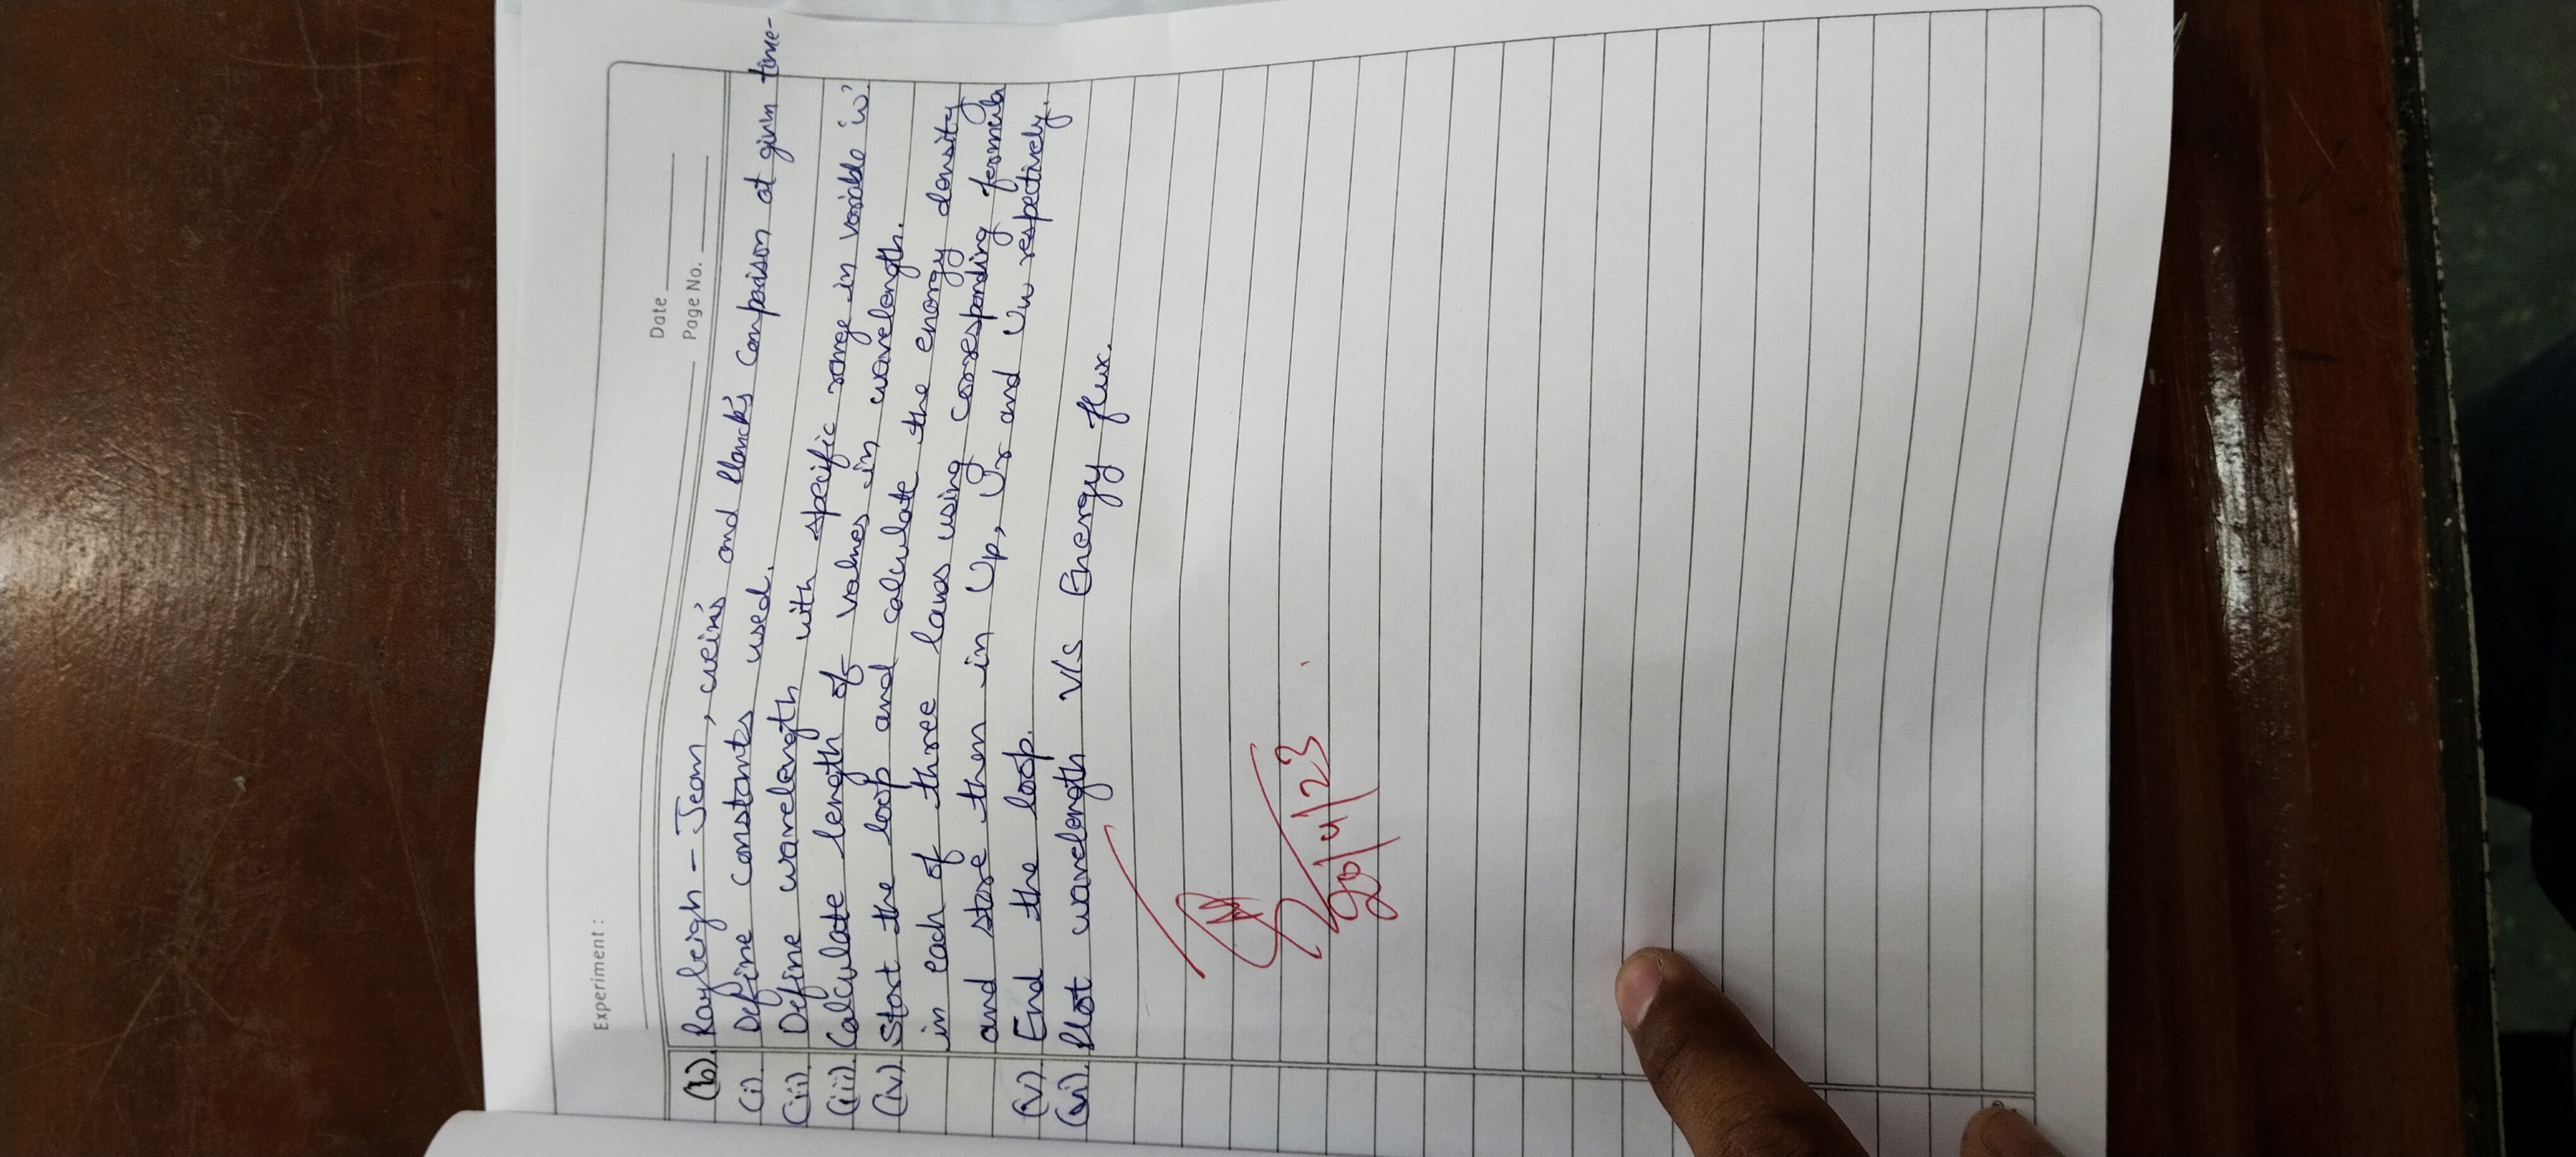 Experiment :
Date
Page No.
(b). Rayleigh - Jean, wein's and Planck's Comparison at given time-
(i). Define constants used.
(ii). Define wavelength with specific range in variable 'w'.
(iii). Calculate length of values in wavelength.
(iv). Start the loop and calculate the energy density
in each of three laws using corresponding formula
and store then in Up, Ur and Uw respectively.
(v). End the loop.
(vi). Plot wavelength v/s Energy flux.
20/4/23